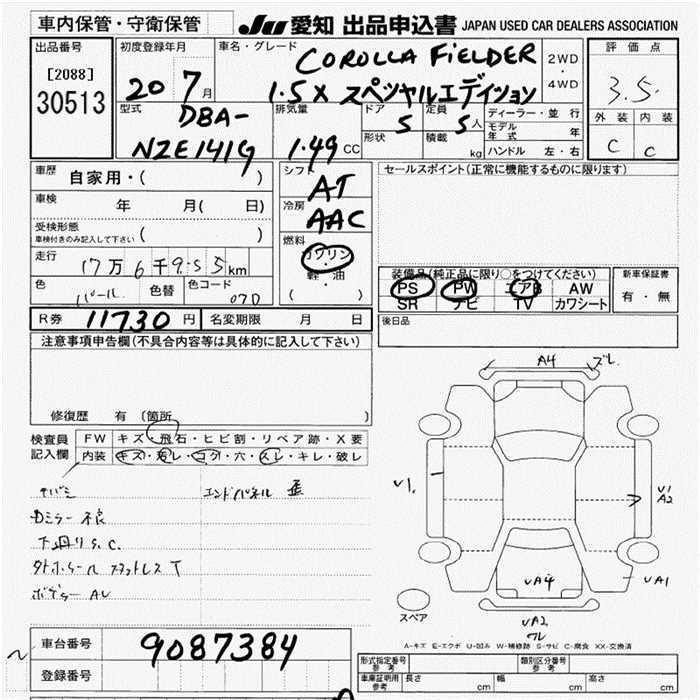 車内保管・守衛保管 JU 愛知 出品申込書 JAPAN USED CAR DEALERS ASSOCIATION
出品番号 初度登録年月 車名・グレード COROLLA FIELDER 2WD・4WD 評価点
[2088] 20 7月 1.5 X スペシャルエディション 3.5
30513 型式 排気量 ドア 定員 ディーラー・並行 外装 内装
DBA- 5 5人 モデル年式 年 C C
NZE141G 1.49 CC 形状 積載 kg ハンドル 左・右
車歴 自家用・( ) シフト AT セールスポイント(正常に機能するものに限ります)
車検 年 月( 日) 冷房 AAC
受検形態
車検付きのみ記入して下さい ( ) 燃料 ガソリン
走行 17万6千955km ・軽・油 装備品(純正品に限り○をつけてください) 新車保証書
色 パール 色替 色コード 070 ( ) PS PW エアB AW 有・無
SR ナビ TV カワシート
R券 11730円 名変期限 月 日 後日品
注意事項申告欄(不具合内容等は具体的に記入して下さい)
A4 ズレ
修復歴 有(箇所 )
検査員 FW キズ・飛石・ヒビ割・リペア跡・X要
記入欄 内装 キズ・汚レ・コゲ・穴・スレ・キレ・破レ
U1. U1
A2
エンドパネル 歪
Dミラー 不良
下廻り S.C.
UA4 UA1
スペア
UA2
A-キズ E-エクボ U-凹み W-補修跡 S-サビ C-腐食 XX-交換済
車台番号 9087384
登録番号
形式指定番号 参考 類別区分番号 参考
車庫証明用 参考 長さ cm 幅 cm 高さ cm